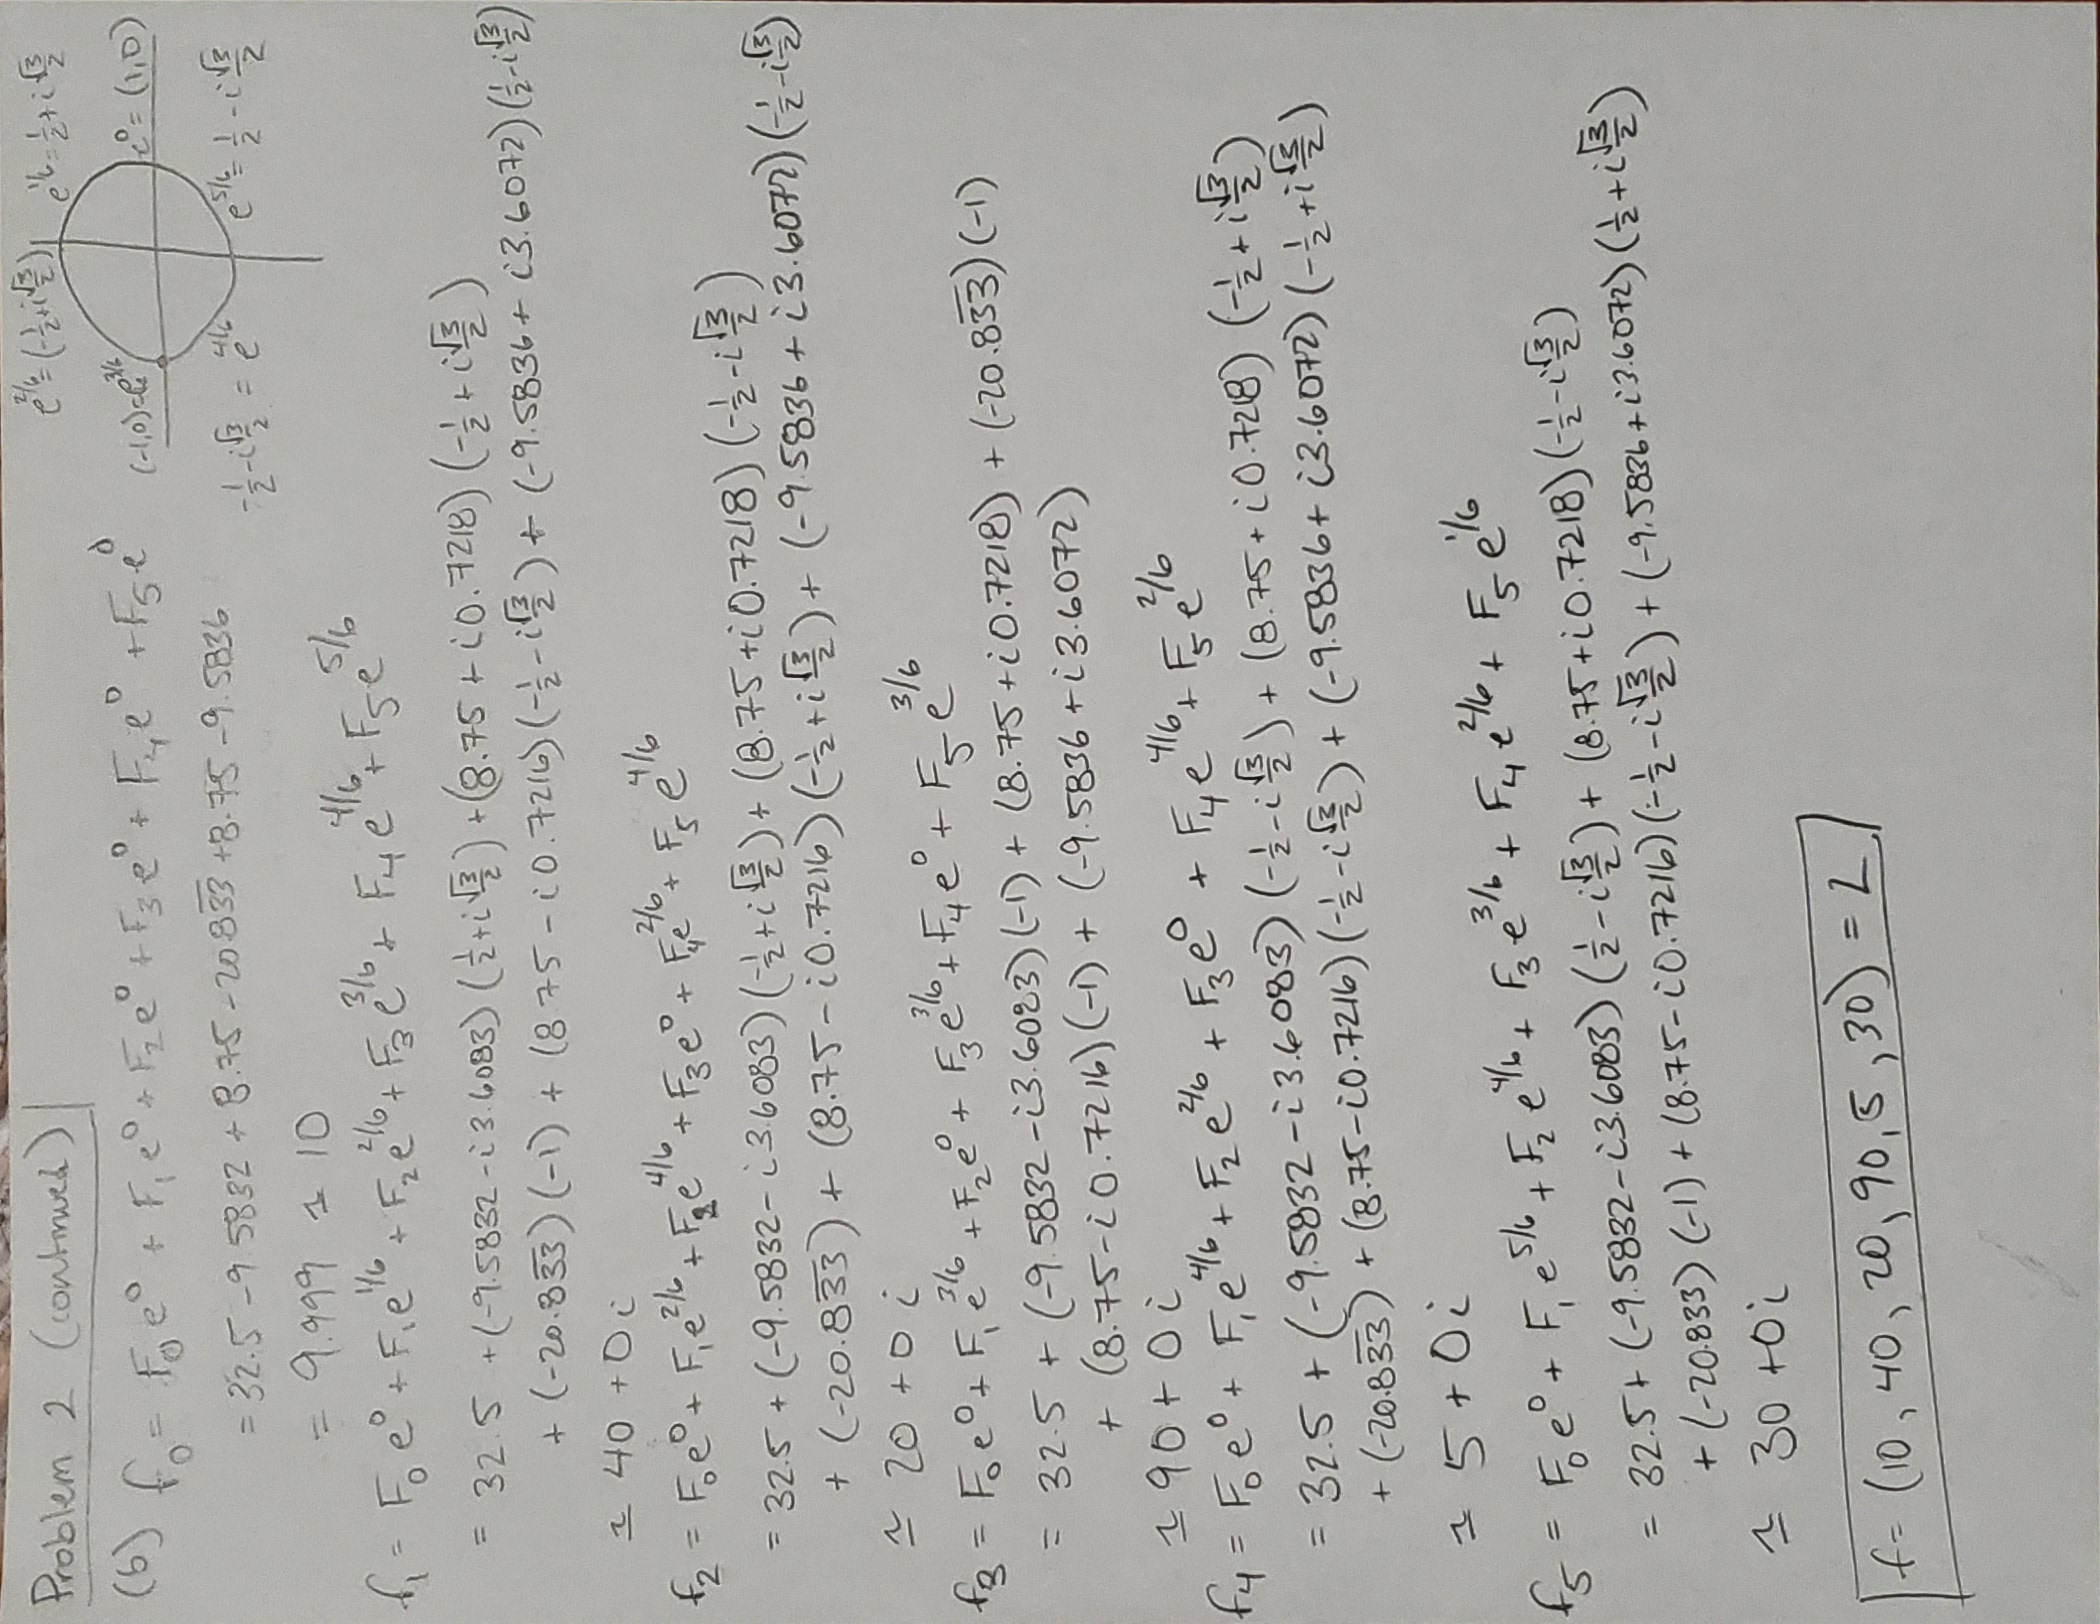 Problem 2 (continued)
e^{2/6} = (-1/2 + i√3/2)
e^{1/6} = 1/2 + i√3/2
(-1,0) = e^{3/6}
e^0 = (1,0)
-1/2 - i√3/2 = e^{4/6}
e^{5/6} = 1/2 - i√3/2
(b) f_0 = F_0 e^0 + F_1 e^0 + F_2 e^0 + F_3 e^0 + F_4 e^0 + F_5 e^0
= 32.5 - 9.5832 + 8.75 - 20.8\overline{33} + 8.75 - 9.5836
= 9.999 ≃ 10
f_1 = F_0 e^0 + F_1 e^{1/6} + F_2 e^{2/6} + F_3 e^{3/6} + F_4 e^{4/6} + F_5 e^{5/6}
= 32.5 + (-9.5832 - i3.6083)(1/2 + i√3/2) + (8.75 + i0.7218)(-1/2 + i√3/2)
+ (-20.8\overline{33})(-1) + (8.75 - i0.7216)(-1/2 - i√3/2) + (-9.5836 + i3.6072)(1/2 - i√3/2)
≃ 40 + 0i
f_2 = F_0 e^0 + F_1 e^{2/6} + F_2 e^{4/6} + F_3 e^0 + F_4 e^{2/6} + F_5 e^{4/6}
= 32.5 + (-9.5832 - i3.6083)(-1/2 + i√3/2) + (8.75 + i0.7218)(-1/2 - i√3/2)
+ (-20.8\overline{33}) + (8.75 - i0.7216)(-1/2 + i√3/2) + (-9.5836 + i3.6072)(-1/2 - i√3/2)
≃ 20 + 0i
f_3 = F_0 e^0 + F_1 e^{3/6} + F_2 e^0 + F_3 e^{3/6} + F_4 e^0 + F_5 e^{3/6}
= 32.5 + (-9.5832 - i3.6083)(-1) + (8.75 + i0.7218) + (-20.8\overline{33})(-1)
+ (8.75 - i0.7216)(-1) + (-9.5836 + i3.6072)
≃ 90 + 0i
f_4 = F_0 e^0 + F_1 e^{4/6} + F_2 e^{2/6} + F_3 e^0 + F_4 e^{4/6} + F_5 e^{2/6}
= 32.5 + (-9.5832 - i3.6083)(-1/2 - i√3/2) + (8.75 + i0.7218)(-1/2 + i√3/2)
+ (-20.8\overline{33}) + (8.75 - i0.7216)(-1/2 - i√3/2) + (-9.5836 + i3.6072)(-1/2 + i√3/2)
≃ 5 + 0i
f_5 = F_0 e^0 + F_1 e^{5/6} + F_2 e^{4/6} + F_3 e^{3/6} + F_4 e^{2/6} + F_5 e^{1/6}
= 32.5 + (-9.5832 - i3.6083)(1/2 - i√3/2) + (8.75 + i0.7218)(-1/2 - i√3/2)
+ (-20.833)(-1) + (8.75 - i0.7216)(-1/2 - i√3/2) + (-9.5836 + i3.6072)(1/2 + i√3/2)
≃ 30 + 0i
f = (10, 40, 20, 90, 5, 30) = L